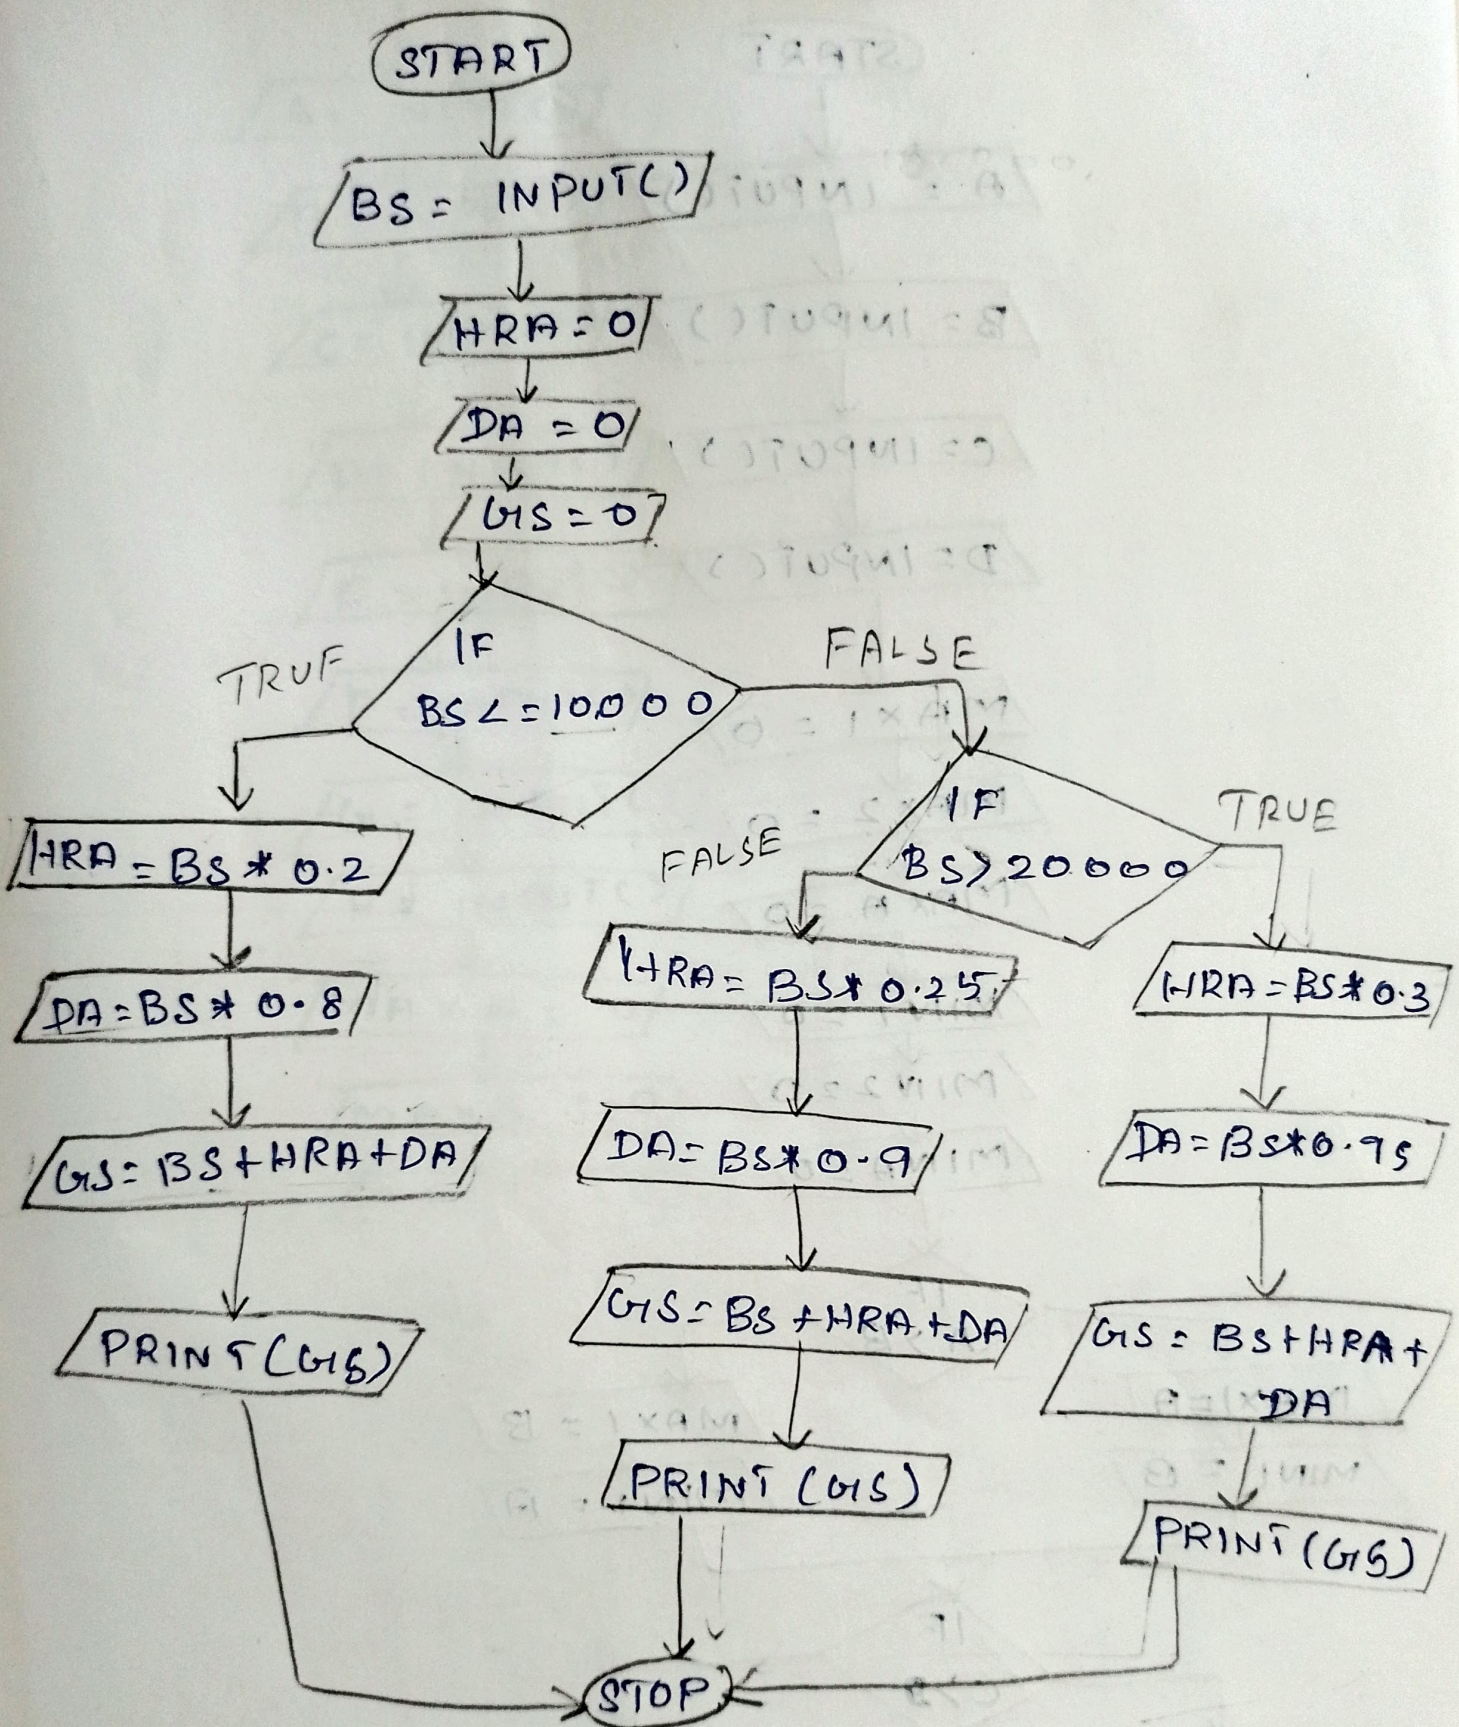 START
BS = INPUT()
HRA = 0
DA = 0
GS = 0
IF
BS <= 10000
TRUE
FALSE
HRA = BS * 0.2
DA = BS * 0.8
GS = BS + HRA + DA
PRINT (GS)
IF
BS > 20000
FALSE
TRUE
HRA = BS * 0.25
DA = BS * 0.9
GS = BS + HRA + DA
PRINT (GS)
HRA = BS * 0.3
DA = BS * 0.95
GS = BS + HRA +
DA
PRINT (GS)
STOP